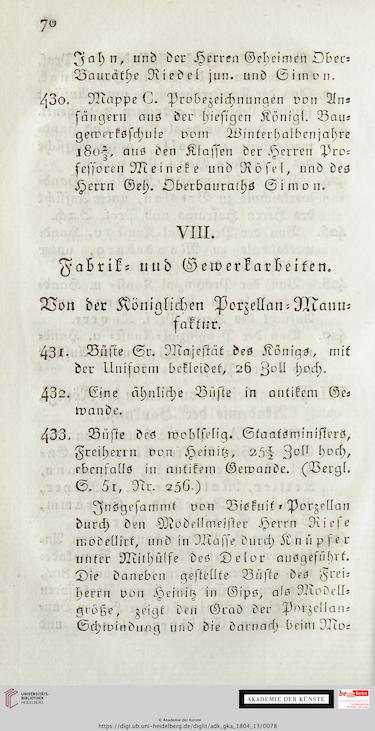 70
Jahn, und der Herren Geheimen Ober-
Bauräthe Riedel jun. und Simon.
430. Mappe C. Probezeichnungen von An-
fängern aus der hiesigen Königl. Bau-
gewerksschule vom Winterhalbenjahre
180⅔, aus den Klassen der Herren Pro-
fessoren Meineke und Rösel, und des
Herrn Geh. Oberbauraths Simon.
VIII.
Fabrik- und Gewerkarbeiten.
Von der Königlichen Porzellan-Manu-
faktur.
431. Büste Sr. Majestät des Königs, mit
der Uniform bekleidet, 26 Zoll hoch.
432. Eine ähnliche Büste in antikem Ge-
wande.
433. Büste des wohlselig. Staatsministers,
Freiherrn von Heinitz, 25½ Zoll hoch,
ebenfalls in antikem Gewande. (Vergl.
S. 51, Nr. 256.)
Insgesammt von Biskuit-Porzellan
durch den Modellmeister Herrn Riese
modellirt, und in Masse durch Knüpfer
unter Mithülfe des Delor ausgeführt.
Die daneben gestellte Büste des Frei-
herrn von Heinitz in Gips, als Modell-
größe, zeigt den Grad der Porzellan-
Schwindung und die darnach beim Mo-
UNIVERSITÄTS-
BIBLIOTHEK
HEIDELBERG
AKADEMIE DER KÜNSTE
© Akademie der Künste
https://digi.ub.uni-heidelberg.de/diglit/adk_gka_1804_13/0078